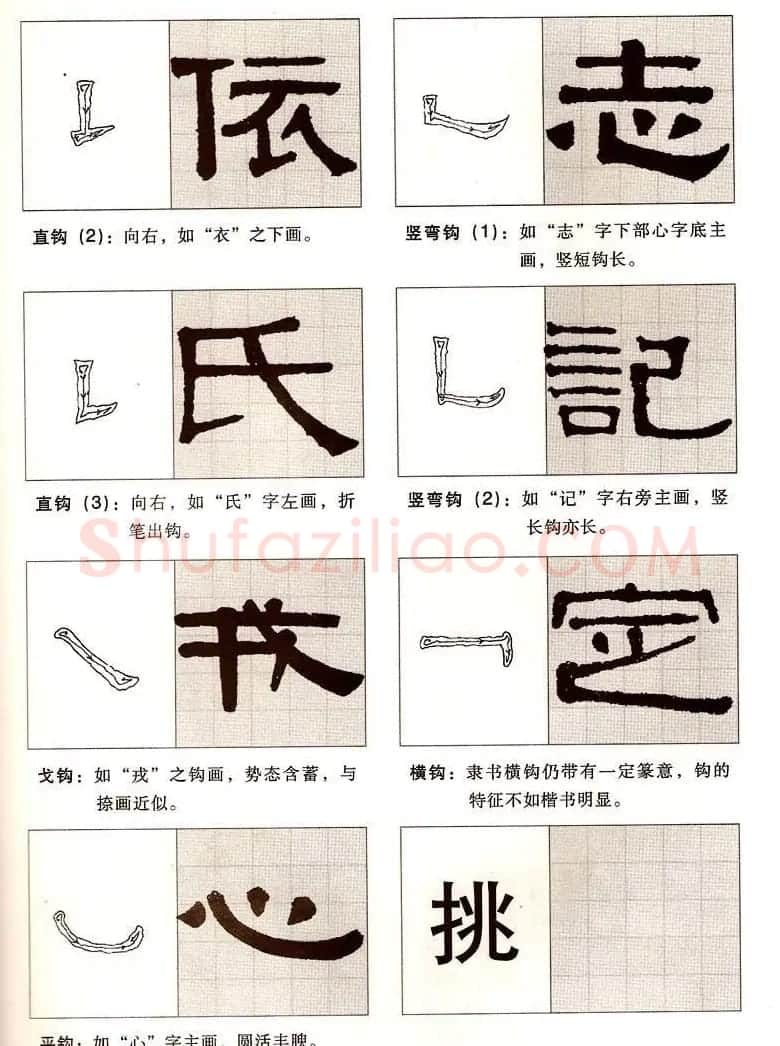 依
志
直钩（2）：向右，如“衣”之下画。
竖弯钩（1）：如“志”字下部心字底主
画，竖短钩长。
氏
記
直钩（3）：向右，如“氏”字左画，折
笔出钩。
竖弯钩（2）：如“记”字右旁主画，竖
长钩亦长。
Shufaziliao.COM
戎
定
戈钩：如“戎”之钩画，势态含蓄，与
捺画近似。
横钩：隶书横钩仍带有一定篆意，钩的
特征不如楷书明显。
心
挑
平钩：如“心”字主画，圆活丰腴。